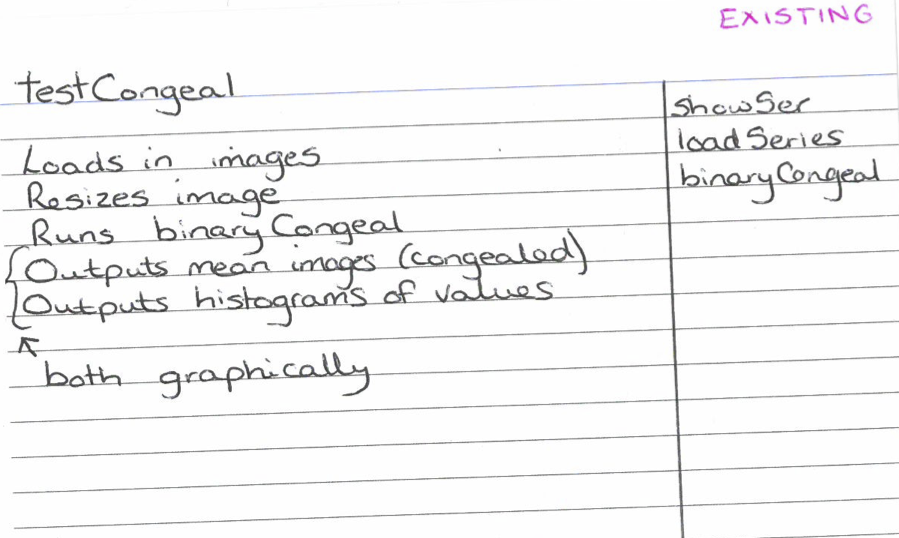 EXISTING
testCongeal
Loads in images
Resizes image
Runs binaryCongeal
Outputs mean images (congealed)
Outputs histograms of values
both graphically
showSer
loadSeries
binaryCongeal